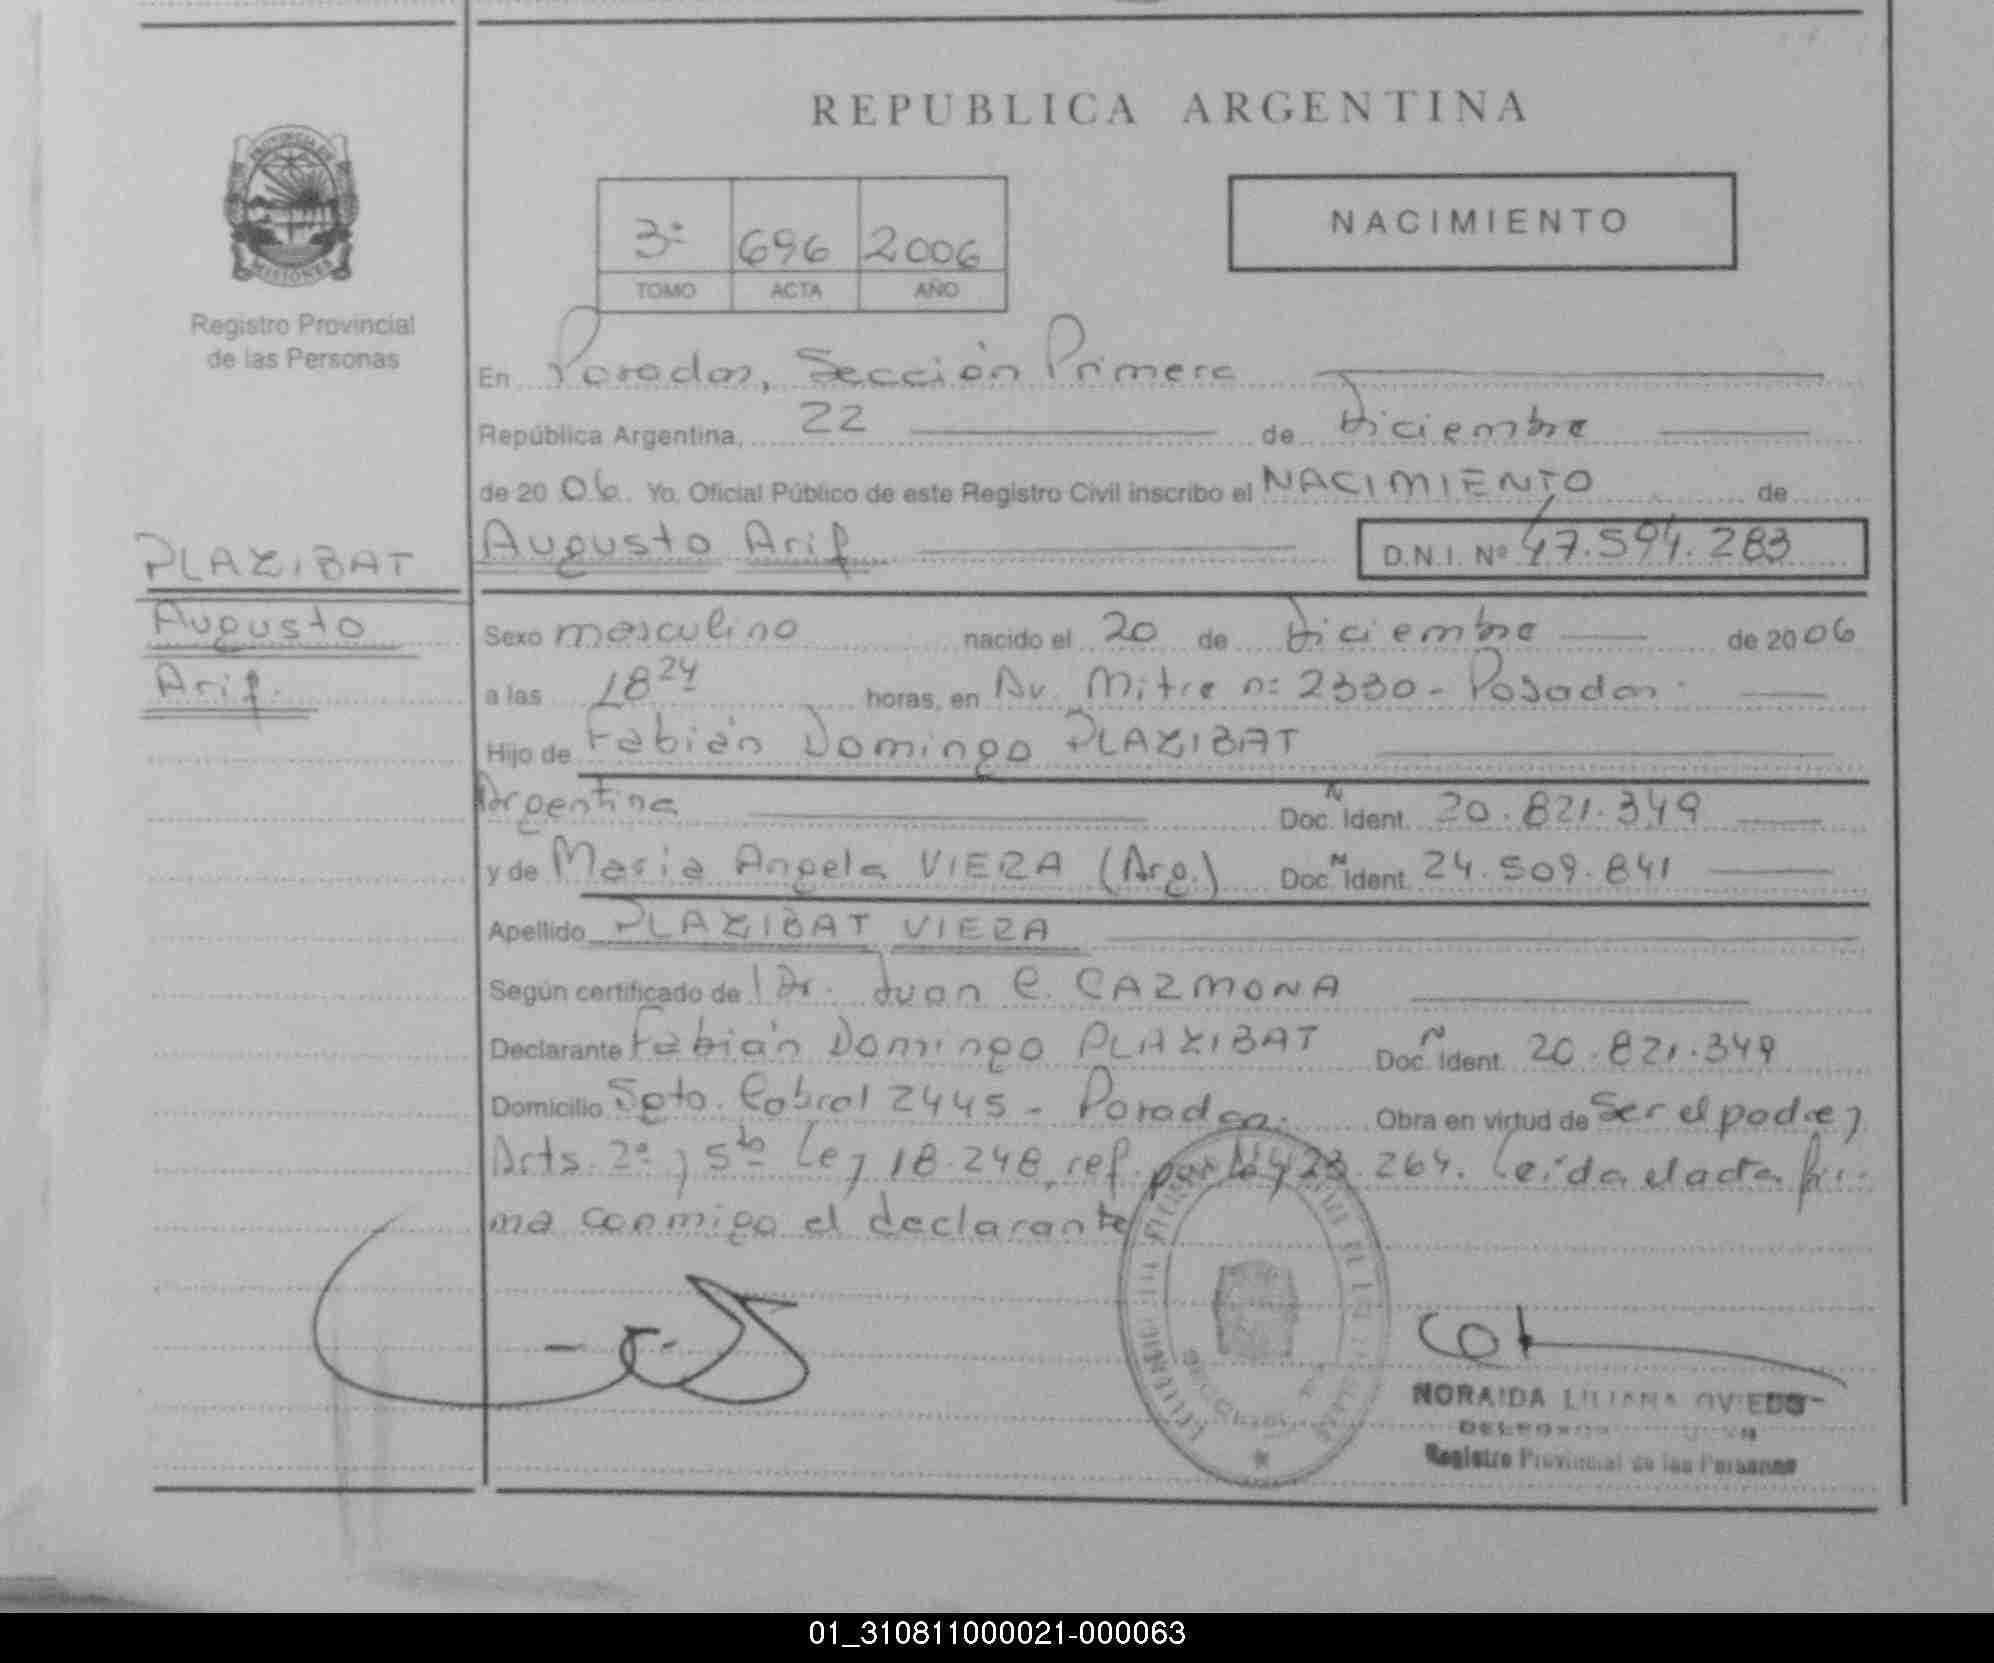 REPUBLICA ARGENTINA
PROVINCIA DE
MISIONES
Registro Provincial
de las Personas
NACIMIENTO
3ª 696 2006
TOMO ACTA AÑO
En Posadas, Sección Primera
República Argentina, 22 de Diciembre
de 20 06. Yo, Oficial Público de este Registro Civil inscribo el NACIMIENTO de
Augusto Arif D.N.I. Nº 47.594.283
PLAZIBAT
Augusto
Arif.
Sexo masculino nacido el 20 de Diciembre de 20 06
a las 18 24 horas, en Av. Mitre nº 2330 - Posadas.
Hijo de Fabián Domingo PLAZIBAT
Argentina Doc. N Ident. 20.821.349
y de Maria Angela VIERA (Arg.) Doc. N Ident. 24.509.841
Apellido PLAZIBAT VIERA
Según certificado de l Dr. Juan C. CARMONA
Declarante Fabián Domingo PLAZIBAT Doc. N Ident. 20.821.349
Domicilio Sgto. Cabral 2445 - Posadas. Obra en virtud de Ser el padre y
Arts. 2º y 5to Ley 18.248, ref. por Ley 23.264. Leída el acta fir-
ma conmigo el declarante
NORAIDA LILIANA OVIEDO
Registro Provincial de las Personas
01_310811000021-000063